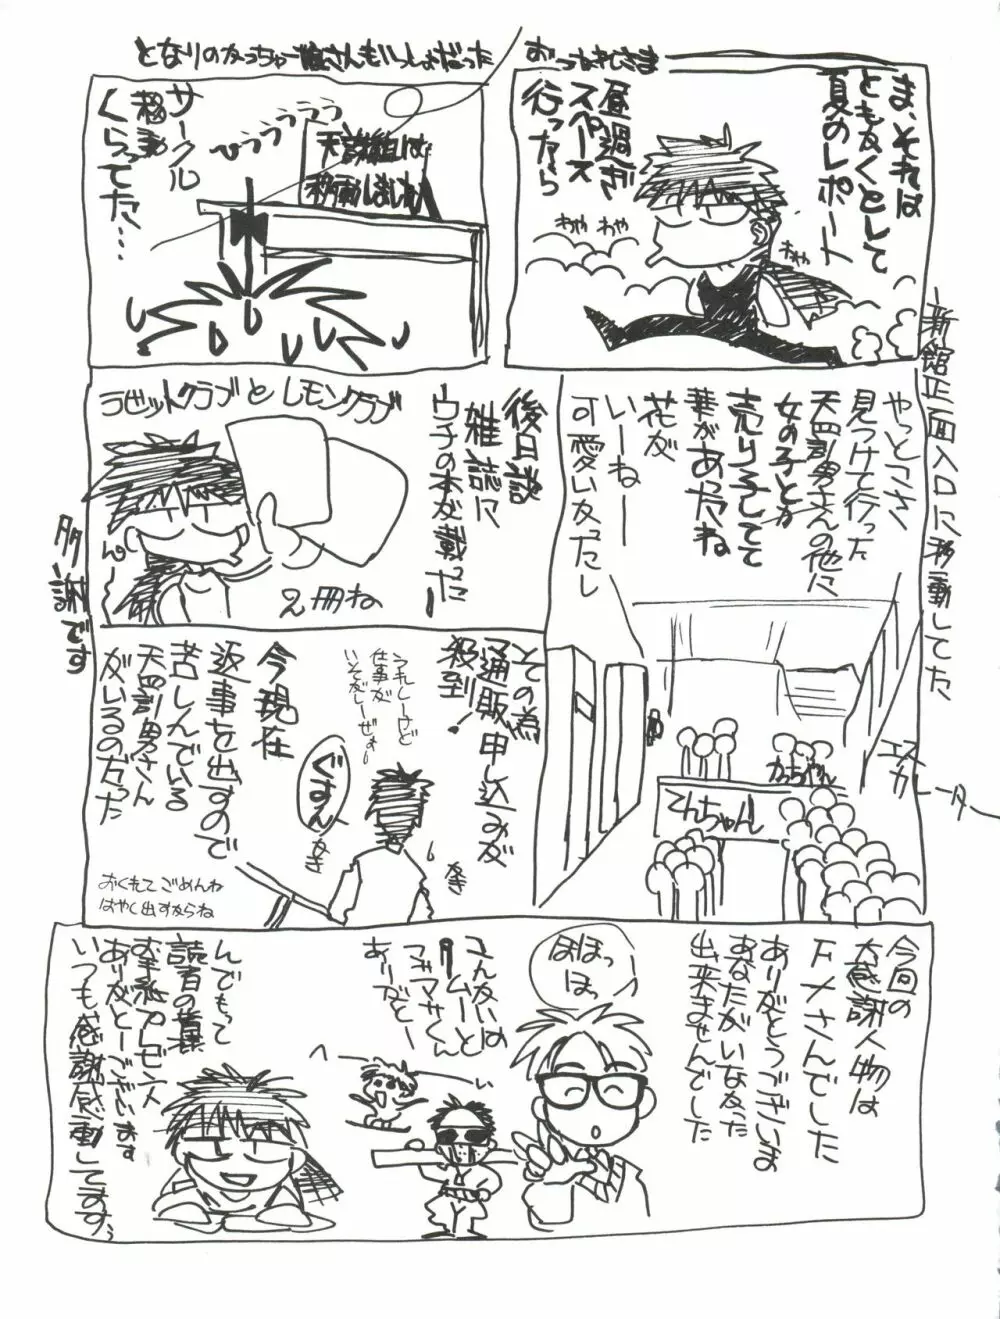 ま、それは
ともかくとして
夏のレポート
昼過ぎ
スペース
行ったら
わやわや
わやわや
おつかれさま
となりのかっちゃ
さんもいっしょだった
サークル
移動
くらってた…
ひゅうううう
天誅組は
移動しました
新館正面入口に移動してた
やっとこさ
見つけて行った
天四訓男さんの他に
女の子とか
売り子してて
華があったね
花が
いーねー
可愛いかったし
エスカレーター
かっちゃん
てんちゃん
後日談
雑誌に
ウチの本が載ったー
ラビットクラブとレモンクラブ
2冊ね
多謝です
その為
通販申し込みが
殺到!
うれしーけど
仕事が
いそがしーぜー
今現在
返事を出すので
苦しんでいる
天四訓男さん
がいるのだった
ぐはん
かき
かき
おくれてごめんね
はやく出すからね
今回の
大感謝人物は
Fメさんでした
ありがとうございま
あなたがいなかった
出来ませんでした
ほほっ
ほっ
こんかいの
タームーと
マサくん
ありがとー
んでもって
読者の皆様
お手紙プレゼント
ありがとーございます
いつも感謝感動してます